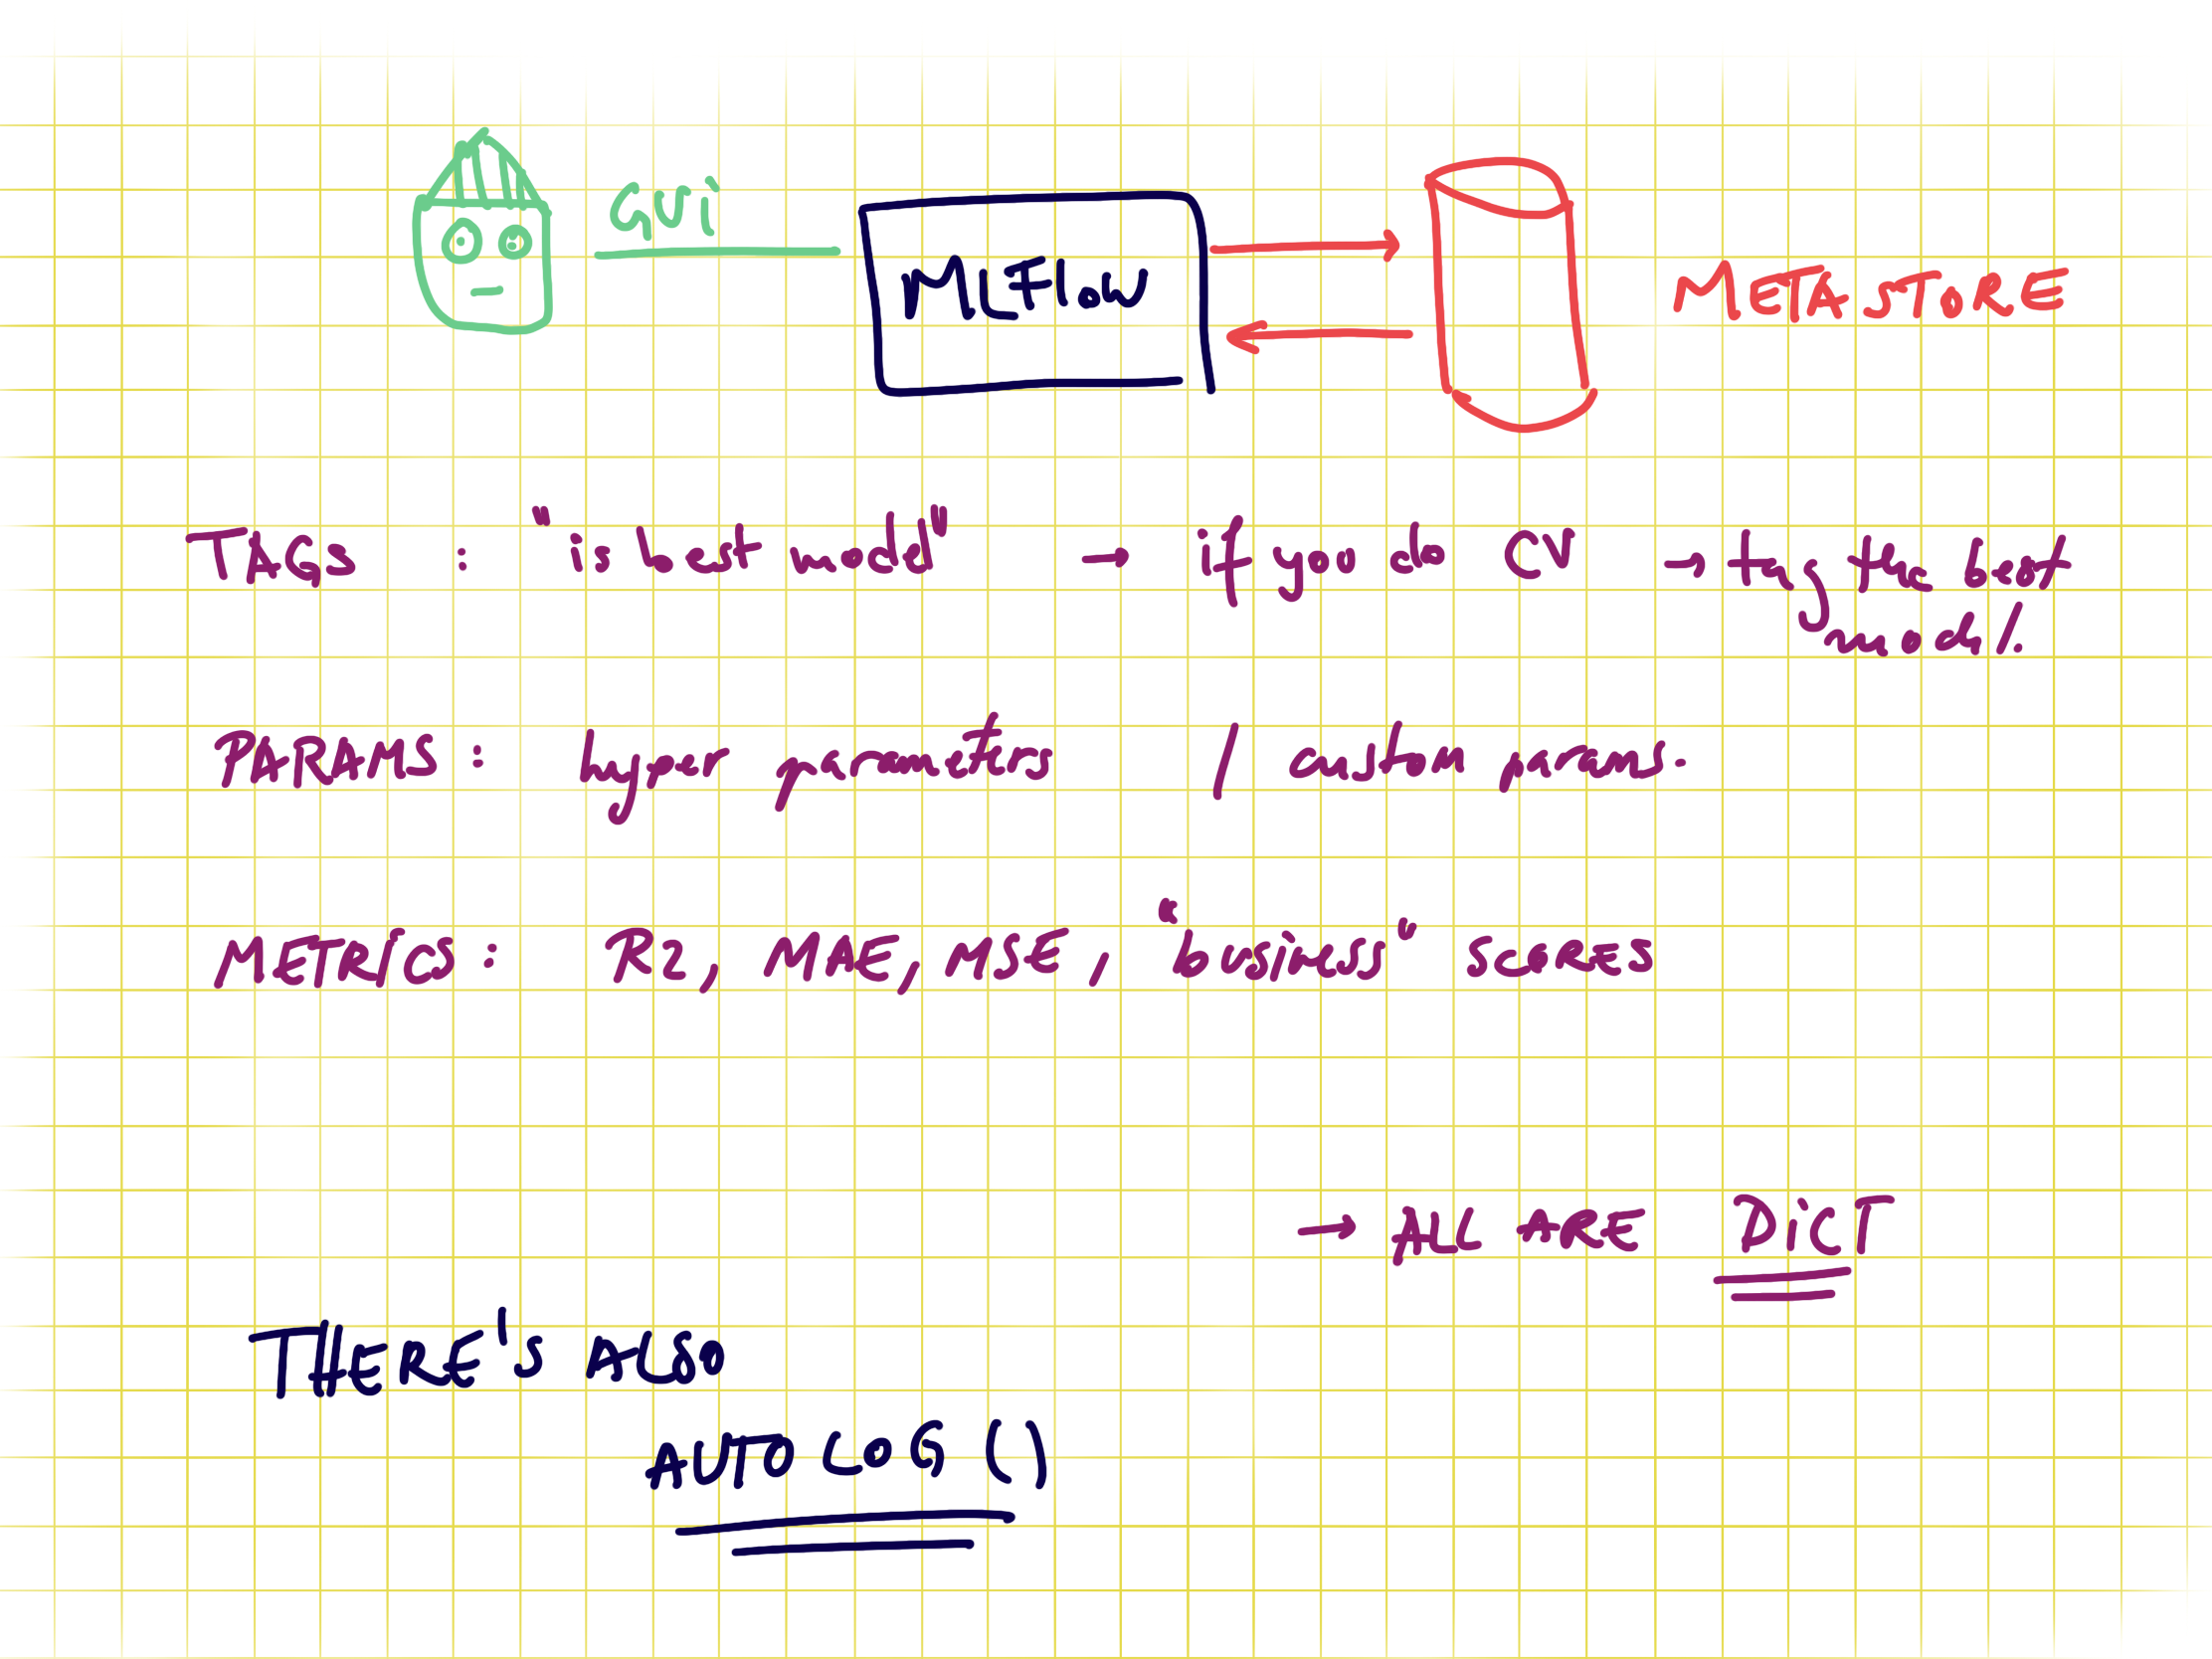 GUi
MLFlow
METASTORE
TAGS : "is best model" → if you do CV → tag the best
model.
PARAMS : hyper parameters / custom params.
METRICS : R2, MAE, MSE, "business" SCORES
→ ALL ARE DiCT
THERE'S ALSO
AUTOLOG ()